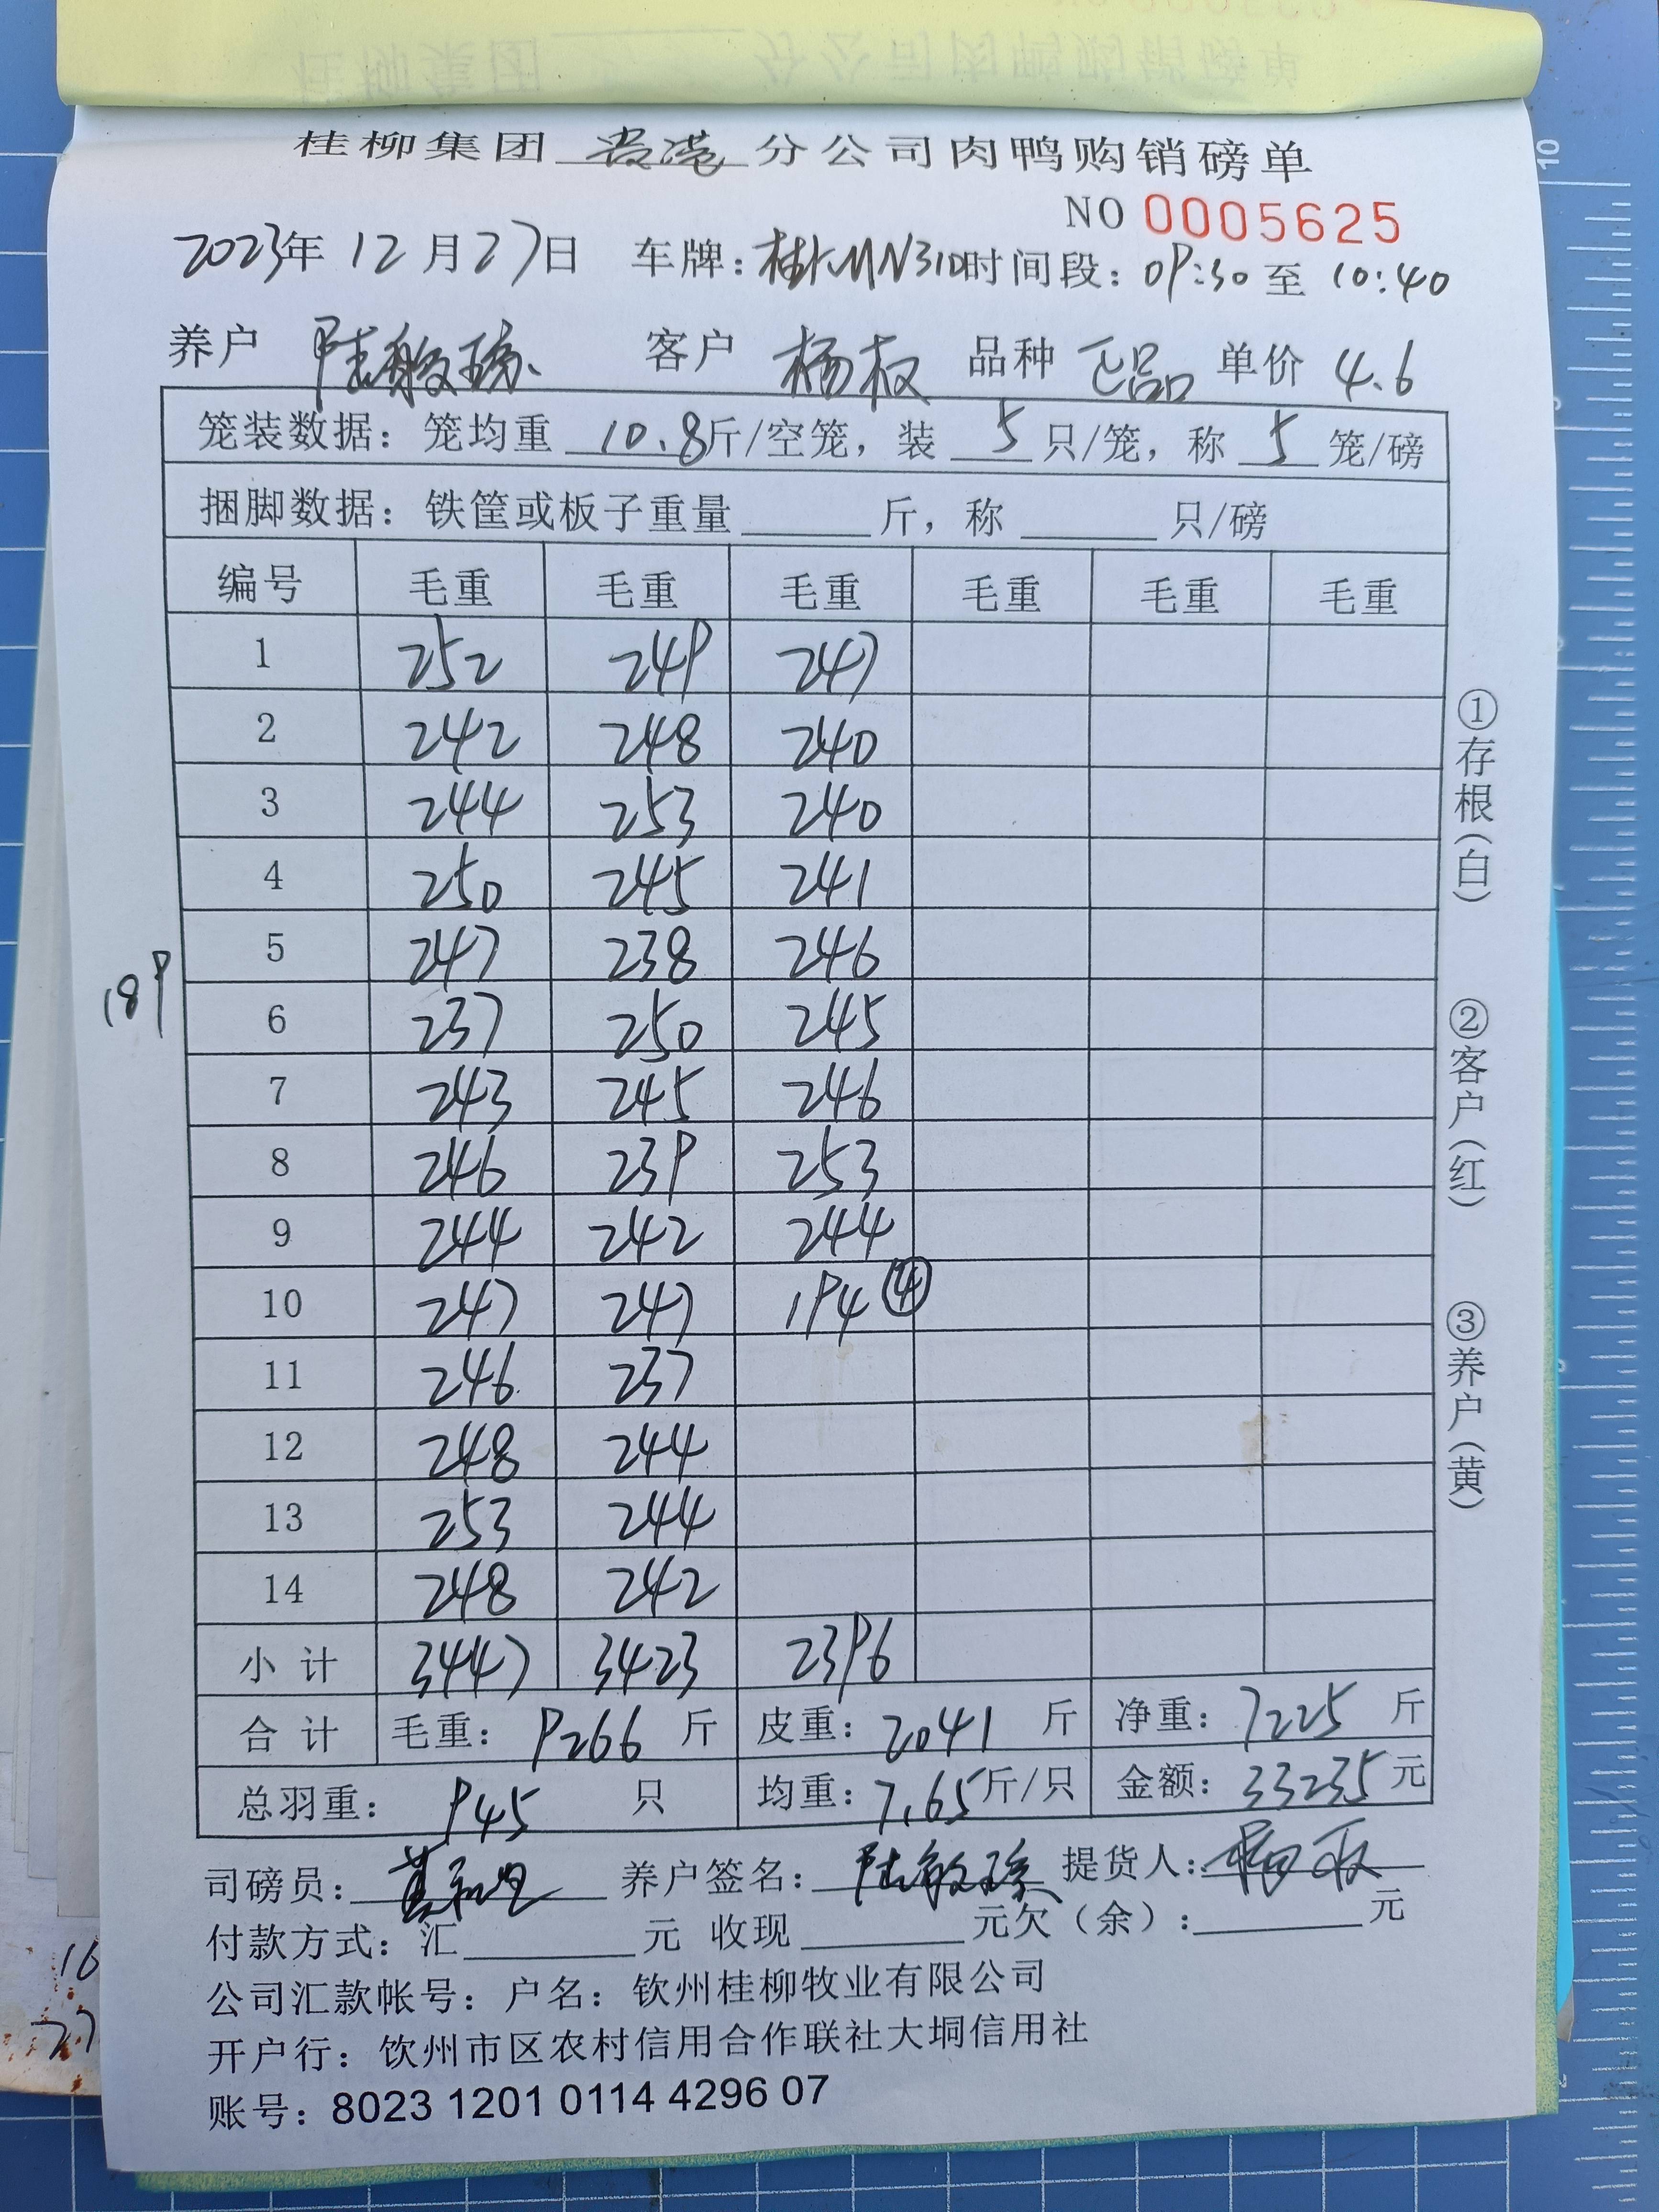 桂柳集团 贵港 分公司肉鸭购销磅单
NO 0005625
2023年 12月27日 车牌: 时间段: 09:30 至 10:40
养户 陆敏 客户 杨权 品种 正品 单价 4.6
笼装数据: 笼均重 10.8斤/空笼, 装 5 只/笼, 称 5 笼/磅
捆脚数据: 铁筐或板子重量 斤, 称 只/磅
编号 毛重 毛重 毛重 毛重 毛重 毛重
1 252 249 247
2 242 248 240
3 244 253 240
4 250 245 241
5 247 238 246
189
6 237 250 245
7 243 245 246
8 246 239 253
9 244 242 244
10 247 247 194 ④
11 246 237
12 248 244
13 253 244
14 248 242
小计 3447 3423 2396
合计 毛重: 9266 斤 皮重: 2041 斤 净重: 7225 斤
总羽重: 945 只 均重: 7.65斤/只 金额: 33235元
司磅员: 养户签名: 陆敏 提货人: 杨权
付款方式: 汇 元 收现 元欠(余): 元
公司汇款帐号: 户名: 钦州桂柳牧业有限公司
开户行: 钦州市区农村信用合作联社大垌信用社
账号: 8023 1201 0114 4296 07
①存根(白)
②客户(红)
③养户(黄)
16
27
10